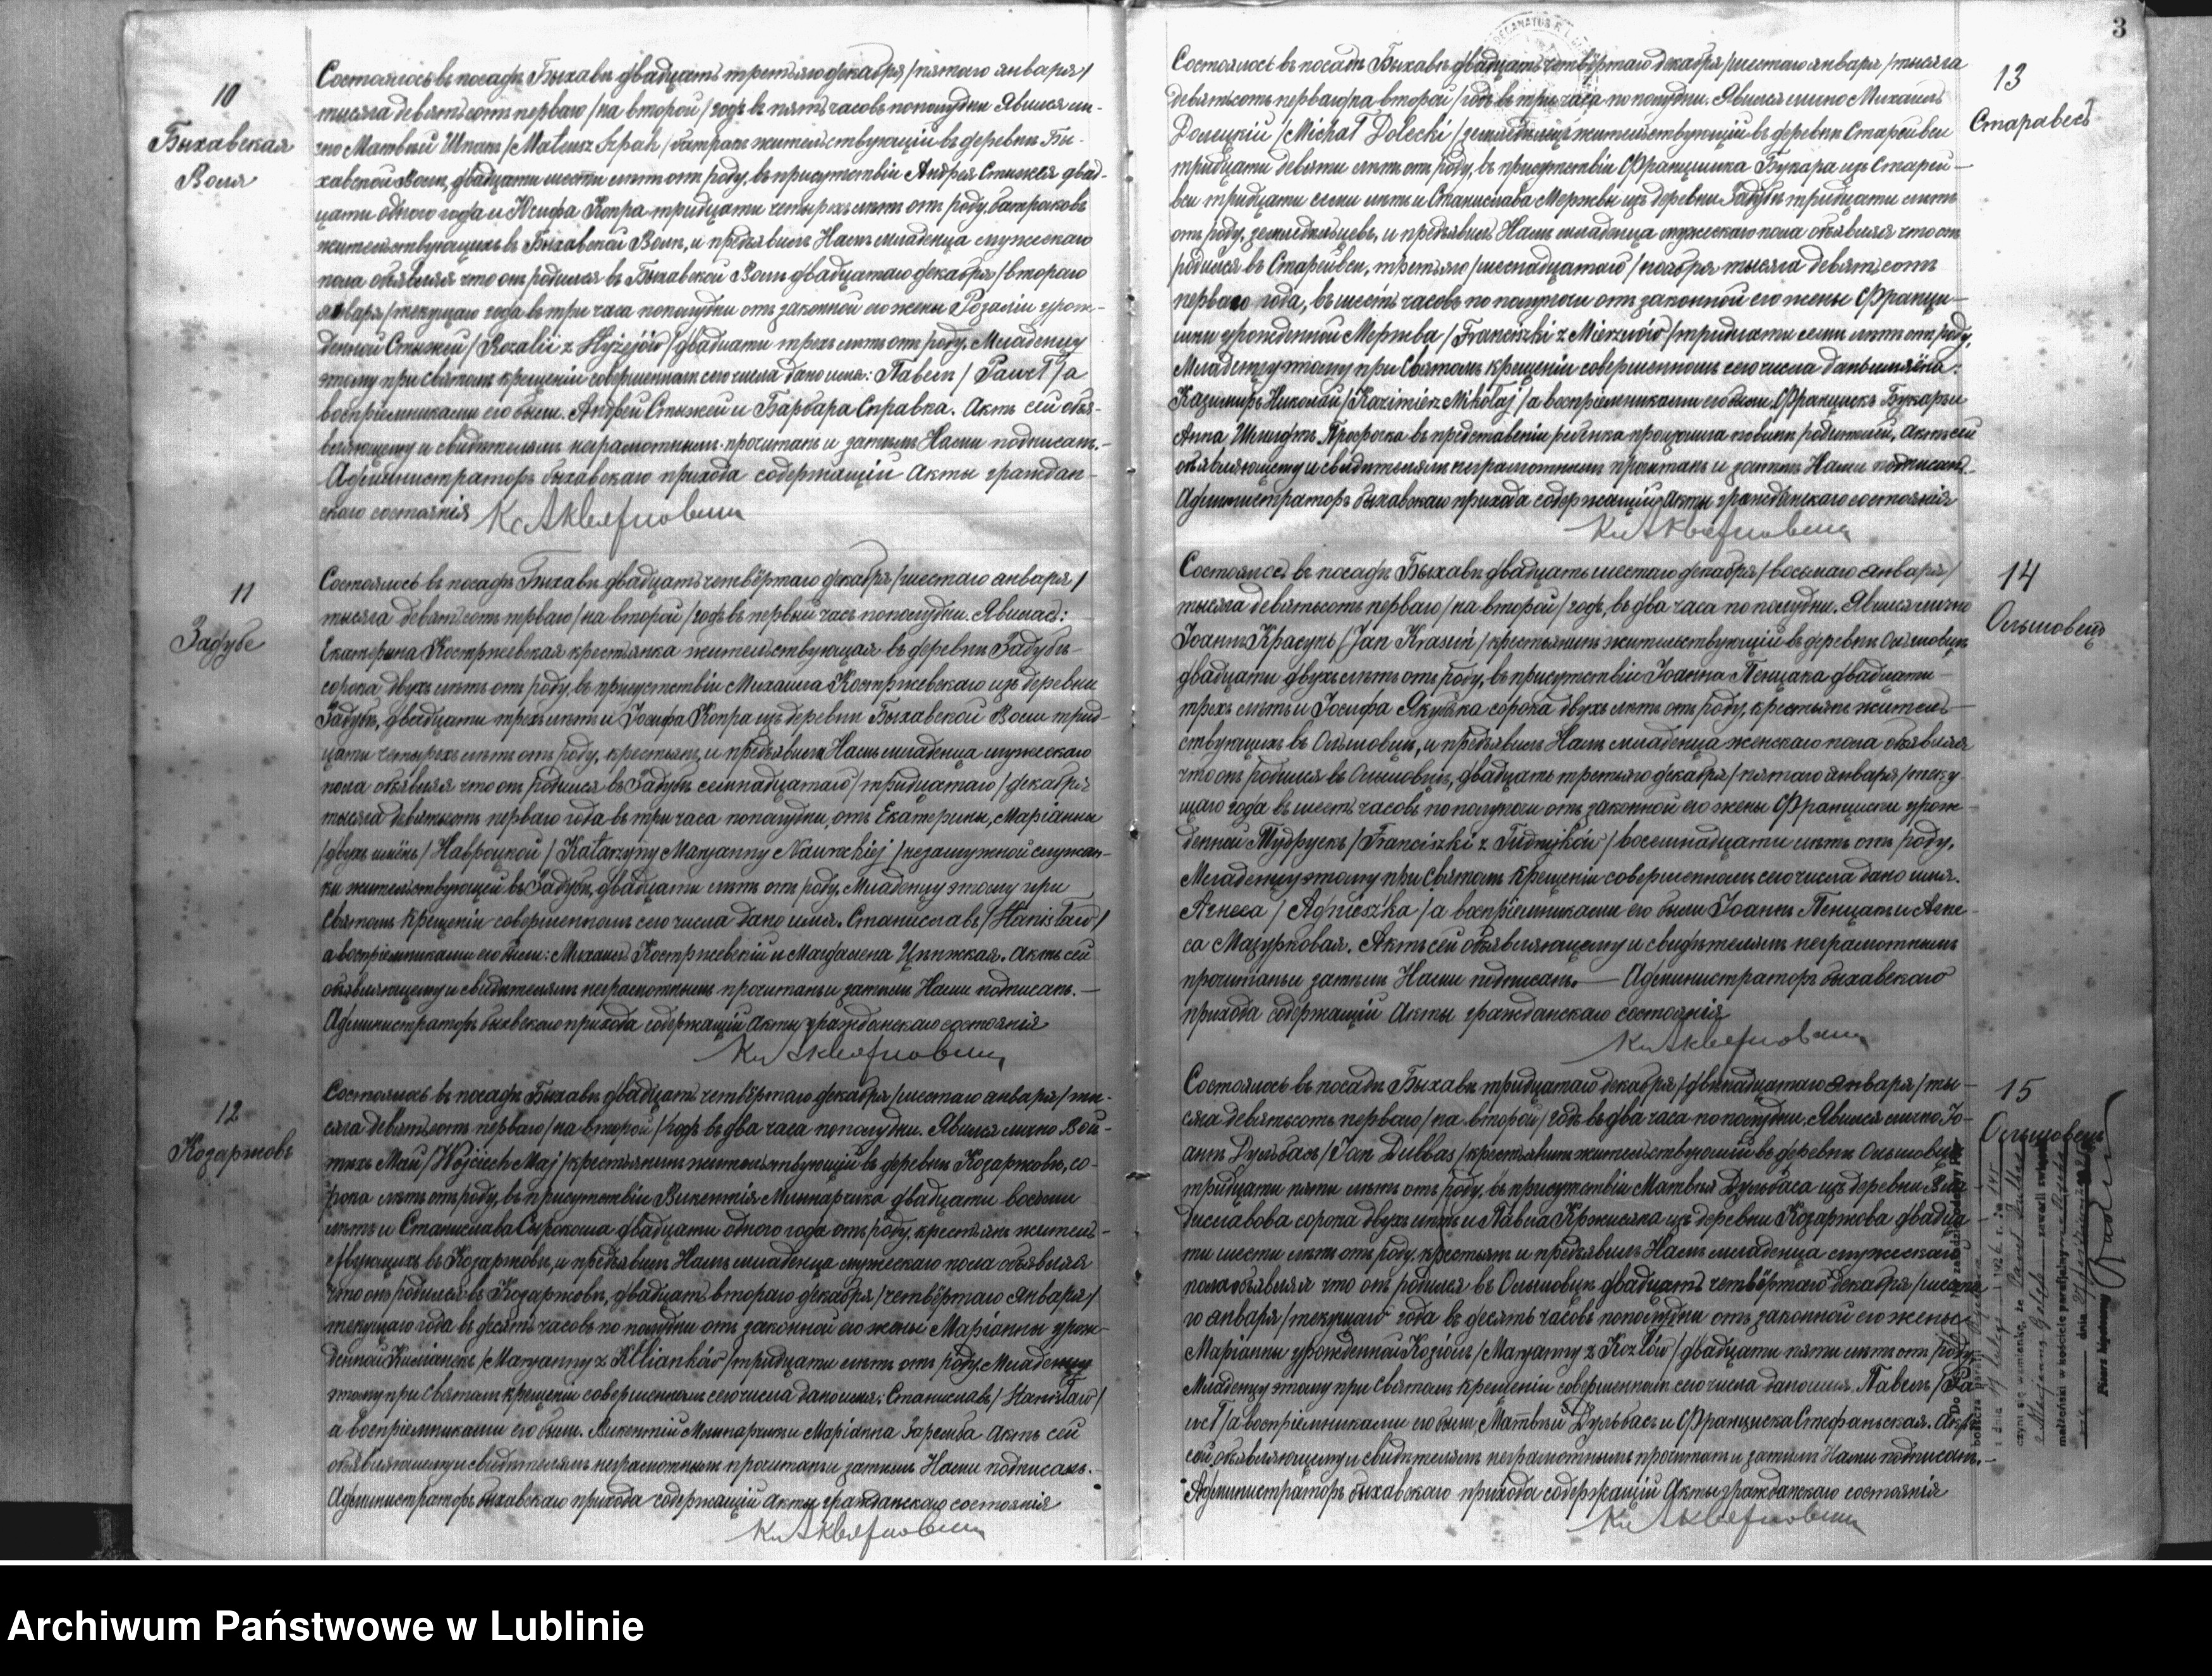 10
Быхавская
Воля
Состоялось въ посадѣ Быхавѣ двадцать третьяго декабря /пятаго января/
тысяча девятьсотъ перваго /на второй/ годъ въ пять часовъ пополудни. Явился ли-
чно Матвѣй Шпакъ /Mateusz Szpak/ батракъ жительствующій въ деревнѣ Бы-
хавской Воли, двадцати шести лѣтъ отъ роду, въ присутствіи Андрея Стыжея двад-
цати одного года и Іосифа Копра тридцати четырехъ лѣтъ отъ роду, батраковъ
жительствующихъ въ Быхавской Воли, и предъявилъ Намъ младенца мужескаго
пола объявляя что онъ родился въ Быхавской Воли двадцатаго декабря /второго
января/ текущаго года въ три часа пополудни отъ законной его жены Розаліи урож-
денной Стыжей /Rozalii z / двадцати трехъ лѣтъ отъ роду. Младенцу
этому при Святомъ крещеніи совершенномъ сего числа дано имя: Павелъ /Paweł/ а
воспріемниками его были: Андрей Стыжей и Барбара Справка. Актъ сей объя-
вляющему и свидѣтелямъ неграмотнымъ прочитанъ и затѣмъ Нами подписанъ.-
Администраторъ быхавскаго прихода содержащій Акты граждан-
скаго состоянія
11
Задубе
Состоялось въ посадѣ Быхавѣ двадцать четвёртаго декабря /шестаго января/
тысяча девятьсотъ перваго /на второй/ годъ въ первый часъ пополудни. Явилась:
Екатерина Костржевская крестьянка жительствующая въ деревнѣ Задубѣ
сорока двухъ лѣтъ отъ роду, въ присутствіи Михаила Костржевскаго изъ деревни
Задубѣ, двадцати трехъ лѣтъ и Іосифа Копра изъ деревни Быхавской Воли трид-
цати четырехъ лѣтъ отъ роду, крестьянъ, и предъявила Намъ младенца мужескаго
пола объявляя что онъ родился въ Задубѣ семнадцатаго /тридцатаго/ декабря
тысяча девятьсотъ перваго года въ три часа пополудни, отъ Екатерины, Маріанны
/двухъ имёнъ/ Навроцкой /Katarzyny Maryanny Nawrockiej/ незамужной служан-
ки жительствующей въ Задубѣ, двадцати лѣтъ отъ роду. Младенцу этому при
Святомъ крещеніи совершенномъ сего числа дано имя: Станиславъ /Stanisław/
а воспріемниками его были: Михаилъ Костржевскій и Магдалена . Актъ сей
объявляющему и свидѣтелямъ неграмотнымъ прочитанъ и затѣмъ Нами подписанъ.-
Администраторъ быхавскаго прихода содержащій Акты гражданскаго состоянія
12
Козаржовъ
Состоялось въ посадѣ Быхавѣ двадцать четвёртаго декабря /шестаго января/ ты-
сяча девятьсотъ перваго /на второй/ годъ въ два часа пополудни. Явился лично Вой-
тѣхъ Май /Wojciech Maj/ крестьянинъ жительствующій въ деревнѣ Козаржовѣ, со-
рока лѣтъ отъ роду, въ присутствіи Викентія Млынарчика двадцати восьми
лѣтъ и Станислава Сырокоша двадцати одного года отъ роду, крестьянъ житель-
ствующихъ въ Козаржовѣ, и предъявилъ Намъ младенца мужескаго пола объявляя
что онъ родился въ Козаржовѣ, двадцать второго декабря /четвёртаго января/
текущаго года въ десять часовъ по полудни отъ законной его жены Маріанны урож-
денной /Maryanny z / тридцати лѣтъ отъ роду. Младенцу
этому при Святомъ крещеніи совершенномъ сего числа дано имя: Станиславъ /Stanisław/
а воспріемниками его были: Викентій Млынарчикъ и Маріанна Заремба. Актъ сей
объявляющему и свидѣтелямъ неграмотнымъ прочитанъ и затѣмъ Нами подписанъ.-
Администраторъ быхавскаго прихода содержащій Акты гражданскаго состоянія
3
13
Старавесь
Состоялось въ посадѣ Быхавѣ двадцать четвёртаго декабря /шестаго января/ тысяча
девятьсотъ перваго /на второй/ годъ въ три часа по полудни. Явился лично Михаилъ
Долецкій /Michał Dolecki/ земледѣлецъ жительствующій въ деревнѣ Старейвси
тридцати девяти лѣтъ отъ роду, въ присутствіи Францишка Букара изъ Старей-
вси тридцати семи лѣтъ и Станислава Мержвы изъ деревни Задубѣ тридцати лѣтъ
отъ роду, земледѣльцевъ, и предъявилъ Намъ младенца мужескаго пола объявляя что онъ
родился въ Старейвси, третьяго /шеснадцатаго/ ноября тысяча девятьсотъ
перваго года, въ шесть часовъ по полуночи отъ законной его жены Францы-
шки урожденной Мержва /Franciszki z Mierzwów/ тридцати семи лѣтъ отъ роду,
Младенцу этому при Святомъ крещеніи совершенномъ сего числа даны имёна:
Казимиръ Николай /Kazimierz Mikołaj/ а воспріемниками его были Францискъ Букаръ и
Анна . Просрочка въ представленіи ребёнка произошла по винѣ родителей, Актъ сей
объявляющему и свидѣтелямъ неграмотнымъ прочитанъ и затѣмъ Нами подписанъ.-
Администраторъ быхавскаго прихода содержащій Акты гражданскаго состоянія
14
Ольшовецъ
Состоялось въ посадѣ Быхавѣ двадцать шестаго декабря /восьмаго января/
тысяча девятьсотъ перваго /на второй/ годъ, въ два часа по полудни. Явился лично
Іоаннъ Красунь /Jan Krasuń/ крестьянинъ жительствующій въ деревнѣ Ольшовцѣ
двадцати двухъ лѣтъ отъ роду, въ присутствіи Іоанна Пенцака двадцати
трехъ лѣтъ и Іосифа Якубака сорока двухъ лѣтъ отъ роду, крестьянъ житель-
ствующихъ въ Ольшовцѣ, и предъявилъ Намъ младенца женскаго пола объявляя
что онъ родился въ Ольшовцѣ, двадцать третьяго декабря /пятаго января/ теку-
щаго года въ шесть часовъ по полуночи отъ законной его жены Францишки урож-
денной /Franciszki z / восемнадцати лѣтъ отъ роду,
Младенцу этому при Святомъ крещеніи совершенномъ сего числа дано имя:
Агнеса /Agnieszka/ а воспріемниками его были Іоаннъ Пенцакъ и Агне-
са Мазурковая. Актъ сей объявляющему и свидѣтелямъ неграмотнымъ
прочитанъ и затѣмъ Нами подписанъ.- Администраторъ быхавскаго
прихода содержащій Акты гражданскаго состоянія
15
Ольшовецъ
Состоялось въ посадѣ Быхавѣ тридцатаго декабря /двѣнадцатаго января/ ты-
сяча девятьсотъ перваго /на второй/ годъ въ два часа по полудни. Явился лично Іо-
аннъ Дульбасъ /Jan Dulbas/ крестьянинъ жительствующій въ деревнѣ Ольшовцѣ
тридцати пяти лѣтъ отъ роду, въ присутствіи Матвѣя Дульбаса изъ деревни Вла-
диславова сорока двухъ лѣтъ и Павла Кржисяка изъ деревни Козаржова двадца-
ти шести лѣтъ отъ роду, крестьянъ и предъявилъ Намъ младенца мужескаго
пола объявляя что онъ родился въ Ольшовцѣ двадцать четвёртаго декабря /шеста-
го января/ текущаго года въ десять часовъ пополудни отъ законной его жены
Маріанны урожденной Козіолъ /Maryanny z Kozłów/ двадцати пяти лѣтъ отъ роду,
Младенцу этому при Святомъ крещеніи совершенномъ сего числа дано имя: Павелъ /Pa-
weł/ а воспріемниками его были, Матвѣй Дульбасъ и Франциска Стефаньская. Актъ
сей объявляющему и свидѣтелямъ неграмотнымъ прочитанъ и затѣмъ Нами подписанъ.-
Администраторъ быхавскаго прихода содержащій Акты гражданскаго состоянія
Archiwum Państwowe w Lublinie